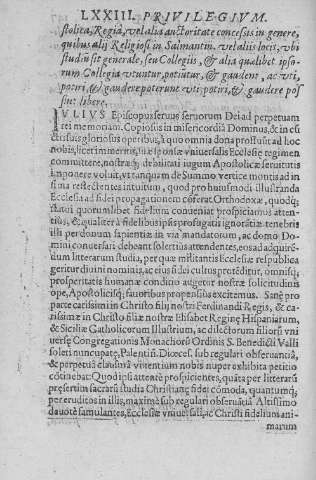 LXXIII. PRIVILEGIVM.
stolica, Regia, vel alia auctoritate concessis in genere,
quibus alij Religiosi in Salmantin. vel alijs locis, vbi
studiũ sit generale, seu Collegiis, & alia qualibet ipso
rum Collegia vtuntur, potiũtur, & gaudent, ac vti,
potiri, & gaudere poterunt vti, potiri, & gaudere pos
sint libere.
IVLIVS Episcopus seruus seruorum Dei ad perpetuam
rei memoriam. Copiosus in misericordia Dominus, & in cũ
ctis suis gloriosus operibus, à quo omnia dona
nobis, licet immeritis, suæ sponsæ vniuersalis Ecclesiæ regimen
committere, nostræq; debilitati iugum Apostolicæ seruitutis
imponere voluit, vt tanquam de Summo vertice montis ad in
fima reflectentes intuitum, quod pro huiusmodi illustranda
Ecclesia ad fidei propagationem conferat Orthodoxæ, quodq;
statui quorumlibet fidelium conueniat prospiciamus atten
tiùs, & qualiter à fidelibus ipsis profugatis ignorãtiæ tenebris
illi per donum sapientiæ in via mandatorum, ac domo Do
mini conuersari debeant solertiùs attendentes, eos ad adquirẽ
dum litterarum studia, per quæ militantis Ecclesiæ respublica
geritur diuini nominis, ac eius fidei cultus protẽditur, omnisq;
prosperitatis humanæ conditio augetur nostræ solicitudinis
ope, Apostolicisq; fauoribus propensiùs excitemus. Sanè pro
parte carissimi in Christo filij nostri Ferdinandi Regis, & ca-
rissimæ in Christo filiæ nostræ Elisabet Reginæ Hispaniarum,
& Siciliæ Catholicorum Illustrium, ac dilectorum filiorũ vni
uersę Congregationis Monachorũ Ordinis S. Benedicti Valli
soleti nuncupatę, Palentiñ. Dioces. sub regulari obseruantiã,
& perpetuã clausurã viuentium nobis nuper exhibita petitio
cõtinebat: Quod ipsi attentè prospicientes, quãta per litterarũ
pręsertim sacrarũ studia Christianę fidei cõmoda, quantumq;
per eruditos in illis, maximè sub regulari obseruãtia Altissimo
deuotè famulantes, Ecclesiæ vniuersali, ac Christi fidelium ani
marum